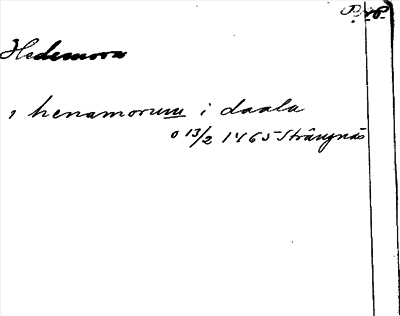 Hedemora
1 henamorum i daala
o 13/2 1465 Strängnäs